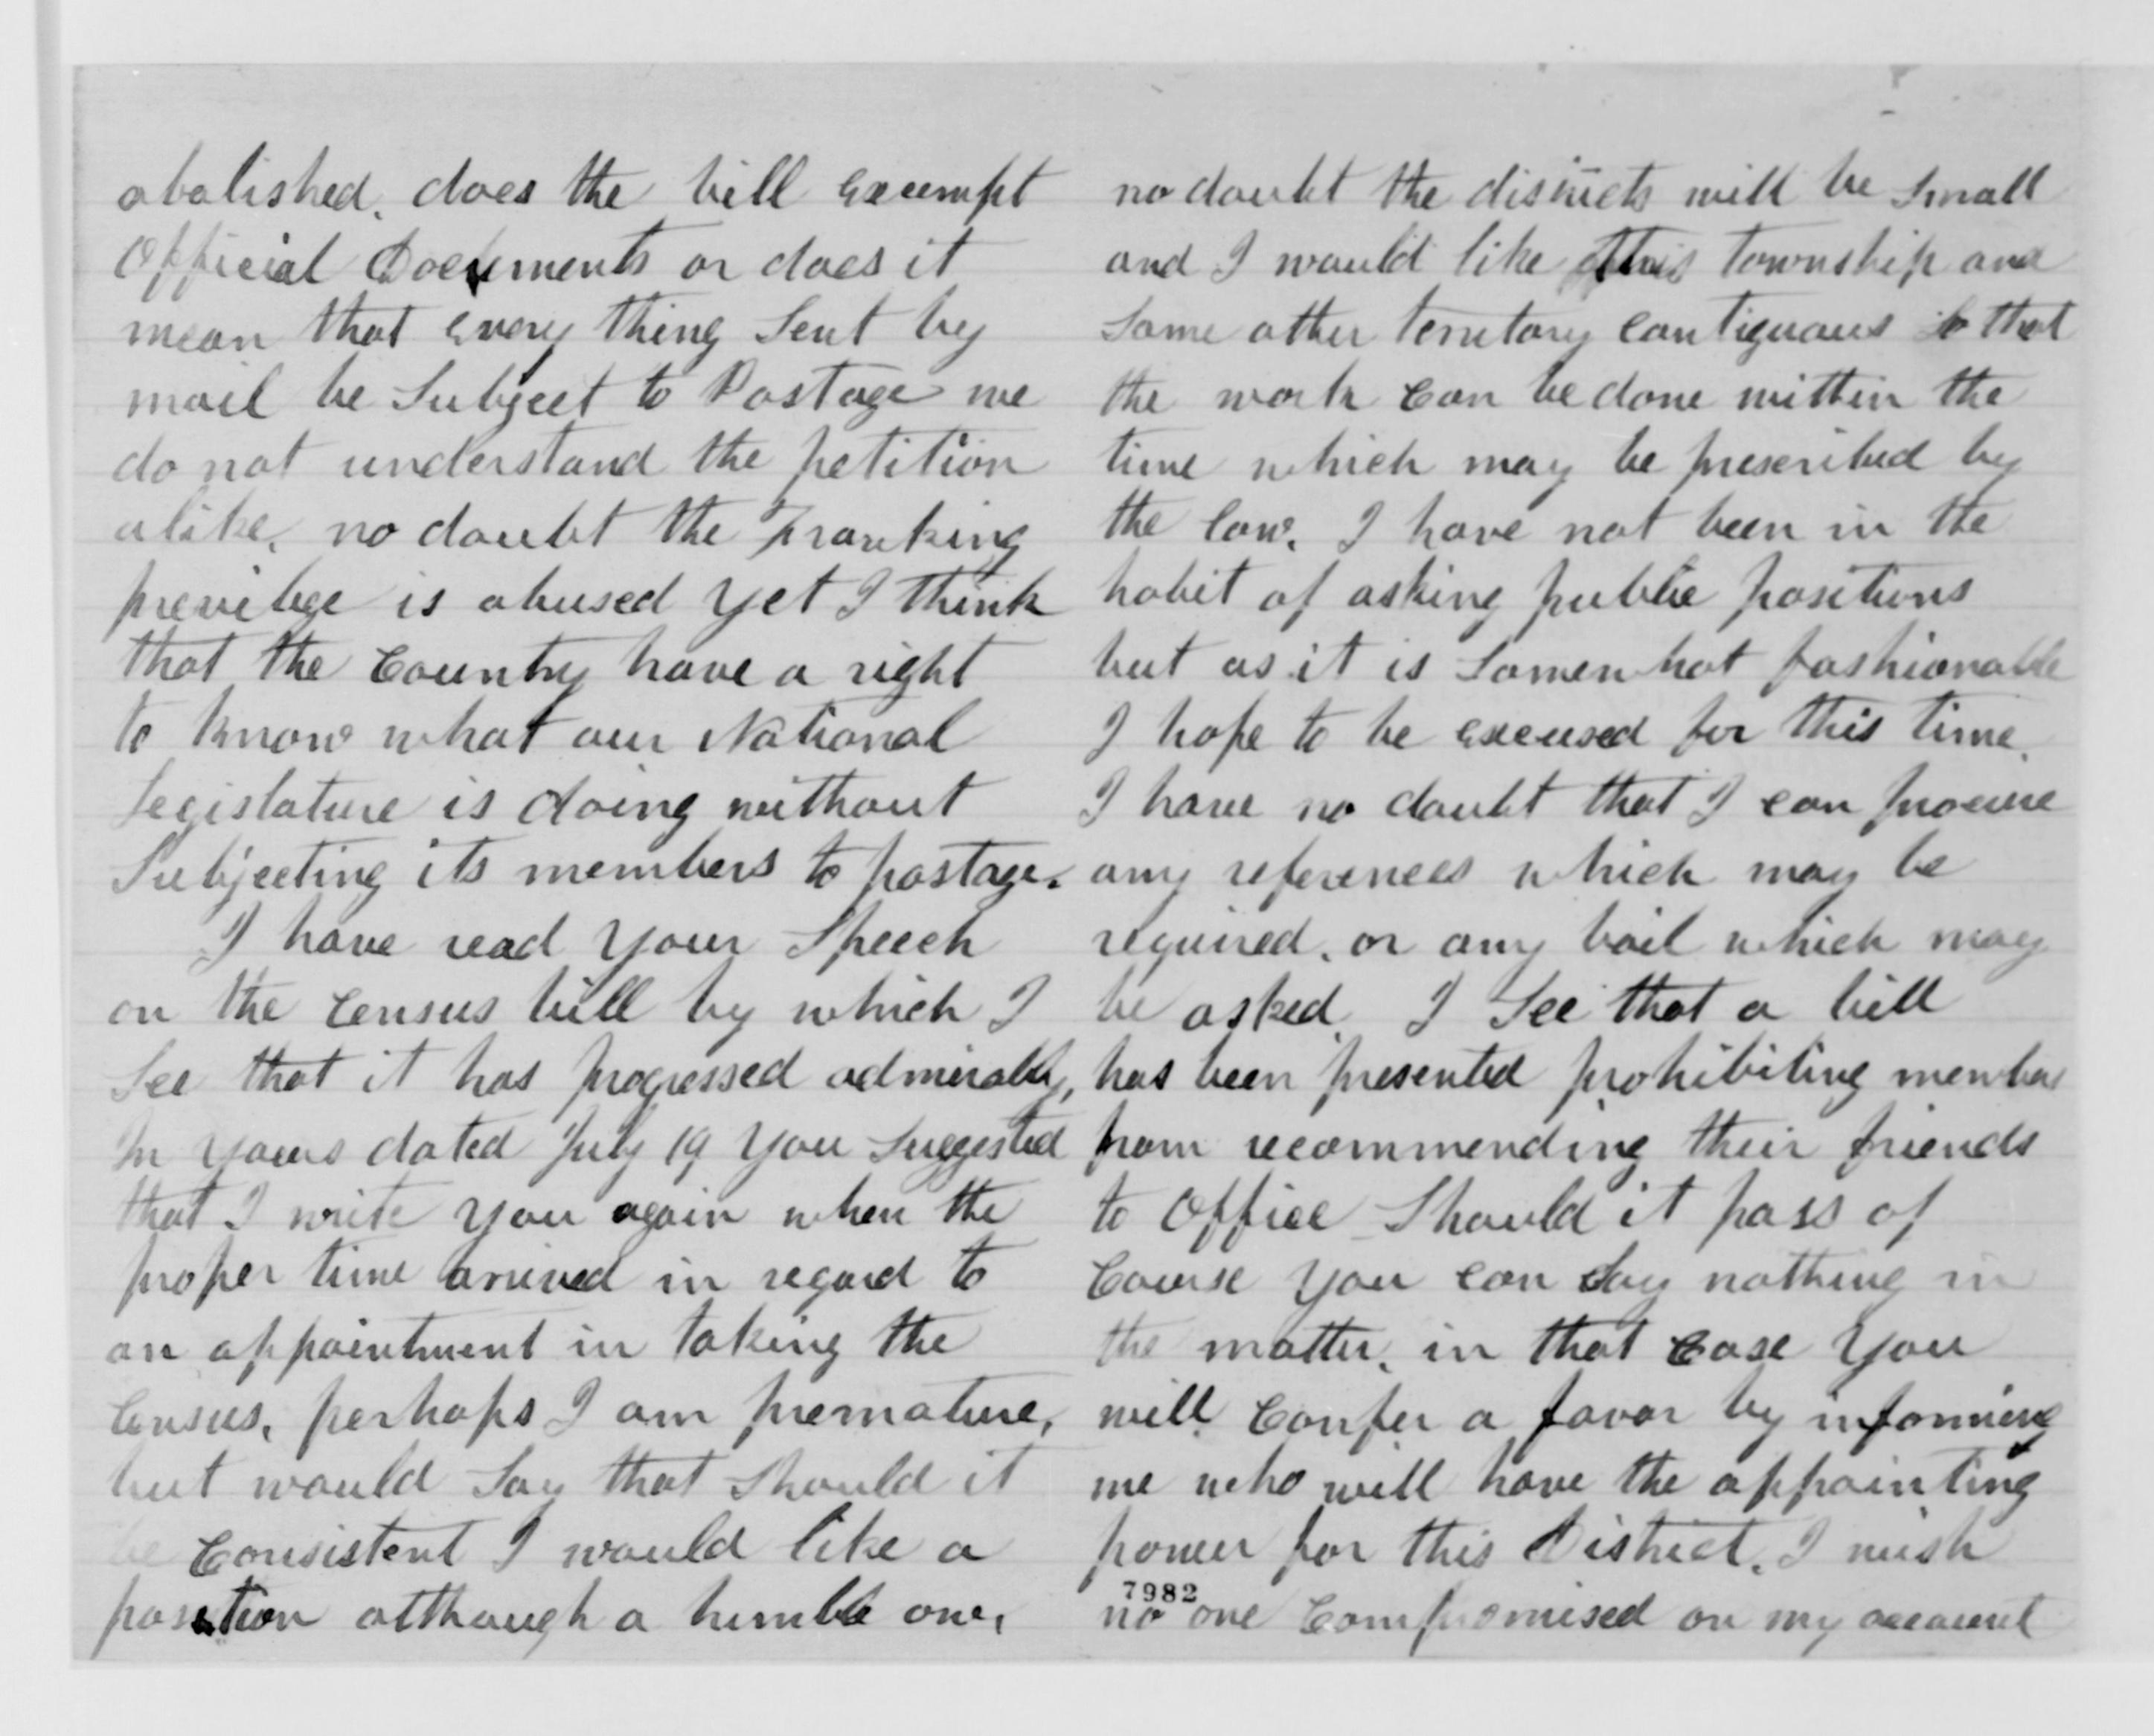 abolished. does the bill exempt
Official Documents or does it
mean that every thing Sent by
mail be Subject to Postage we
do not understand the petition
alike. no doubt the Franking
previlege is abused yet I think
that the Country have a right
to know what our National
Legislature is doing without
Subjecting its members to postage.
I have read your Speech
on the Census bill by which I
See that it has progressed admirably,
In yours dated July 19 you Suggested
that I write you again when the
proper time arrived in regard to
an appointment in taking the
Census, perhaps I am premature,
but would Say that Should it
be Consistent I would like a
position although a humble one,
no doubt the districts will be Small
and I would like this township and
Some other territory contiguous So that
the work can be done within the
time which may be prescribed by
the law. I have not been in the
habit of asking public positions
but as it is Somewhat fashionable
I hope to be excused for this time.
I have no doubt that I can procure
any references which may be
required. or any bail which may
be asked. I See that a bill
has been presented prohibiting members
from recommending their friends
to Office Should it pass of
Course you can Say nothing in
the matter. in that Case you
will Confer a favor by informing
me who will have the appointing
power for this District. I wish
7982
no one Compromised on my account